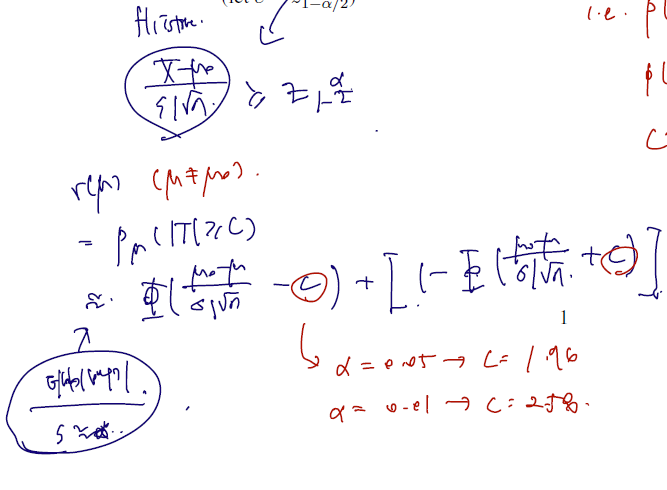 (let c = z_{1-α/2})
H₁: true.
i.e. P(
\frac{\bar{X}-μ₀}{S/√n} ≥ z_{1-\frac{α}{2}}
P(
C
r(μ) (μ ≠ μ₀).
= P_μ(|T| ≥ C)
≈ Φ(\frac{μ₀-μ}{σ/√n} - C) + [1 - Φ(\frac{μ₀-μ}{σ/√n} + C)]
1
α = 0.05 → C = 1.96
α = 0.01 → C = 2.58.
S ≈ σ